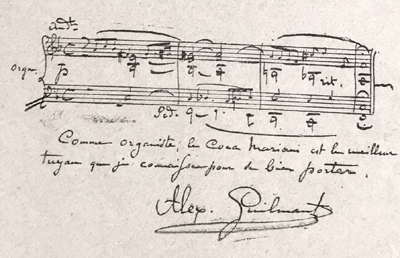 And.te
Orgue
p
rit.
Ped.
Comme organiste, le Coca Mariani est le meilleur
tuyau que je connaisse pour se bien porter.
Alex. Guilmant